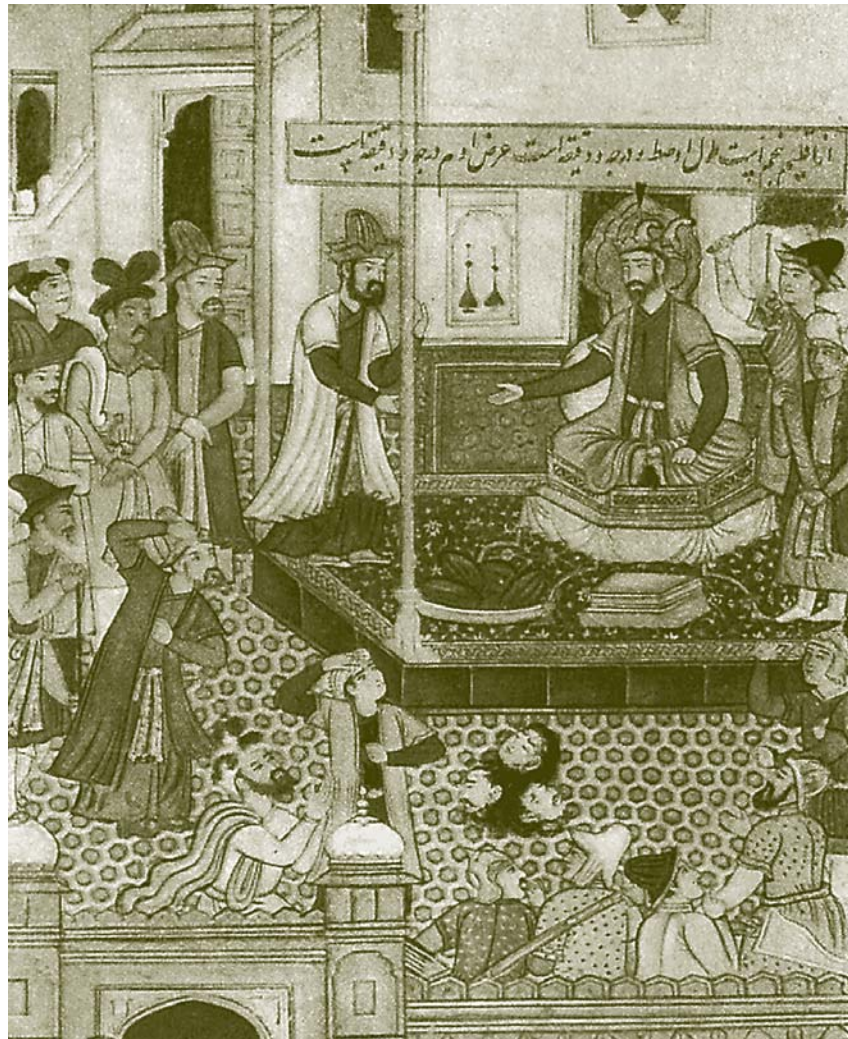 از اقلیم پنجم است طول او صط درجه و دقیقه است عرض او م درجه و دقیقه است